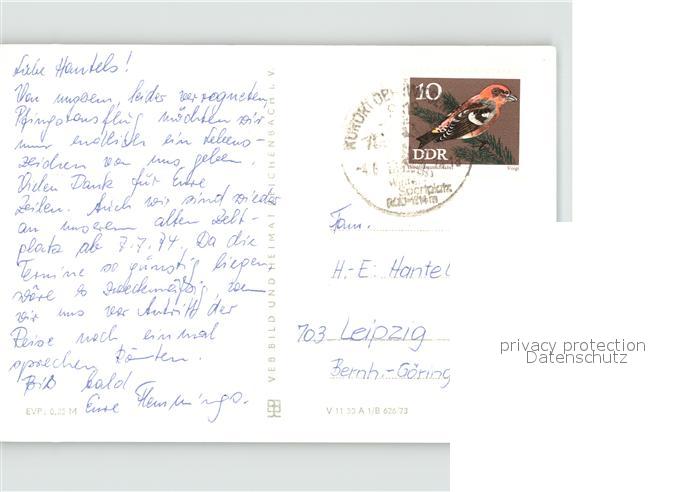 Liebe Hantels!
Von unserem, leider verregneten
Pfingstausflug möchten wir
nun endlich ein Lebens-
zeichen von uns geben.
Vielen Dank für Eure
Zeilen. Auch wir sind wieder
an unserem alten Zelt-
platz ab 7.7.74. Da die
Termine so günstig liegen,
wäre es zweckmäßig wenn
wir uns vor Antritt der
Reise noch einmal
sprechen könnten.
Bis bald
Eure Flemmings.
EVP: 0,25 M
VEB BILD UND HEIMAT REICHENBACH i. V.
V 11 50 A 1/B 626/73
10
DDR
KURORT
Sportplatz
Fam.
H.-E. Hantel
703 Leipzig
Bernh.-Göring
privacy protection
Datenschutz